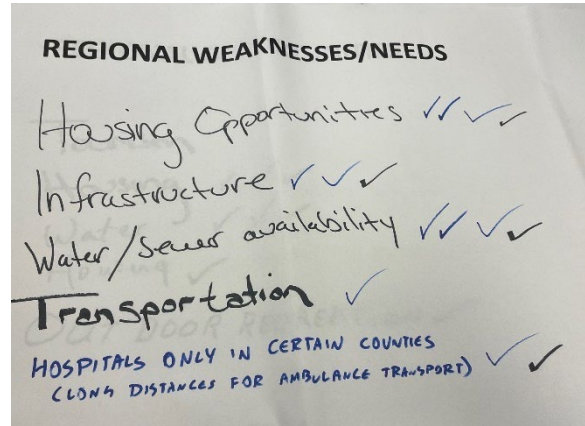 REGIONAL WEAKNESSES/NEEDS
Housing Opportunities ✓✓ ✓ ✓
Infrastructure ✓ ✓ ✓
Water/Sewer availability ✓✓ ✓ ✓
Transportation ✓
HOSPITALS ONLY IN CERTAIN COUNTIES
(LONG DISTANCES FOR AMBULANCE TRANSPORT) ✓ ✓